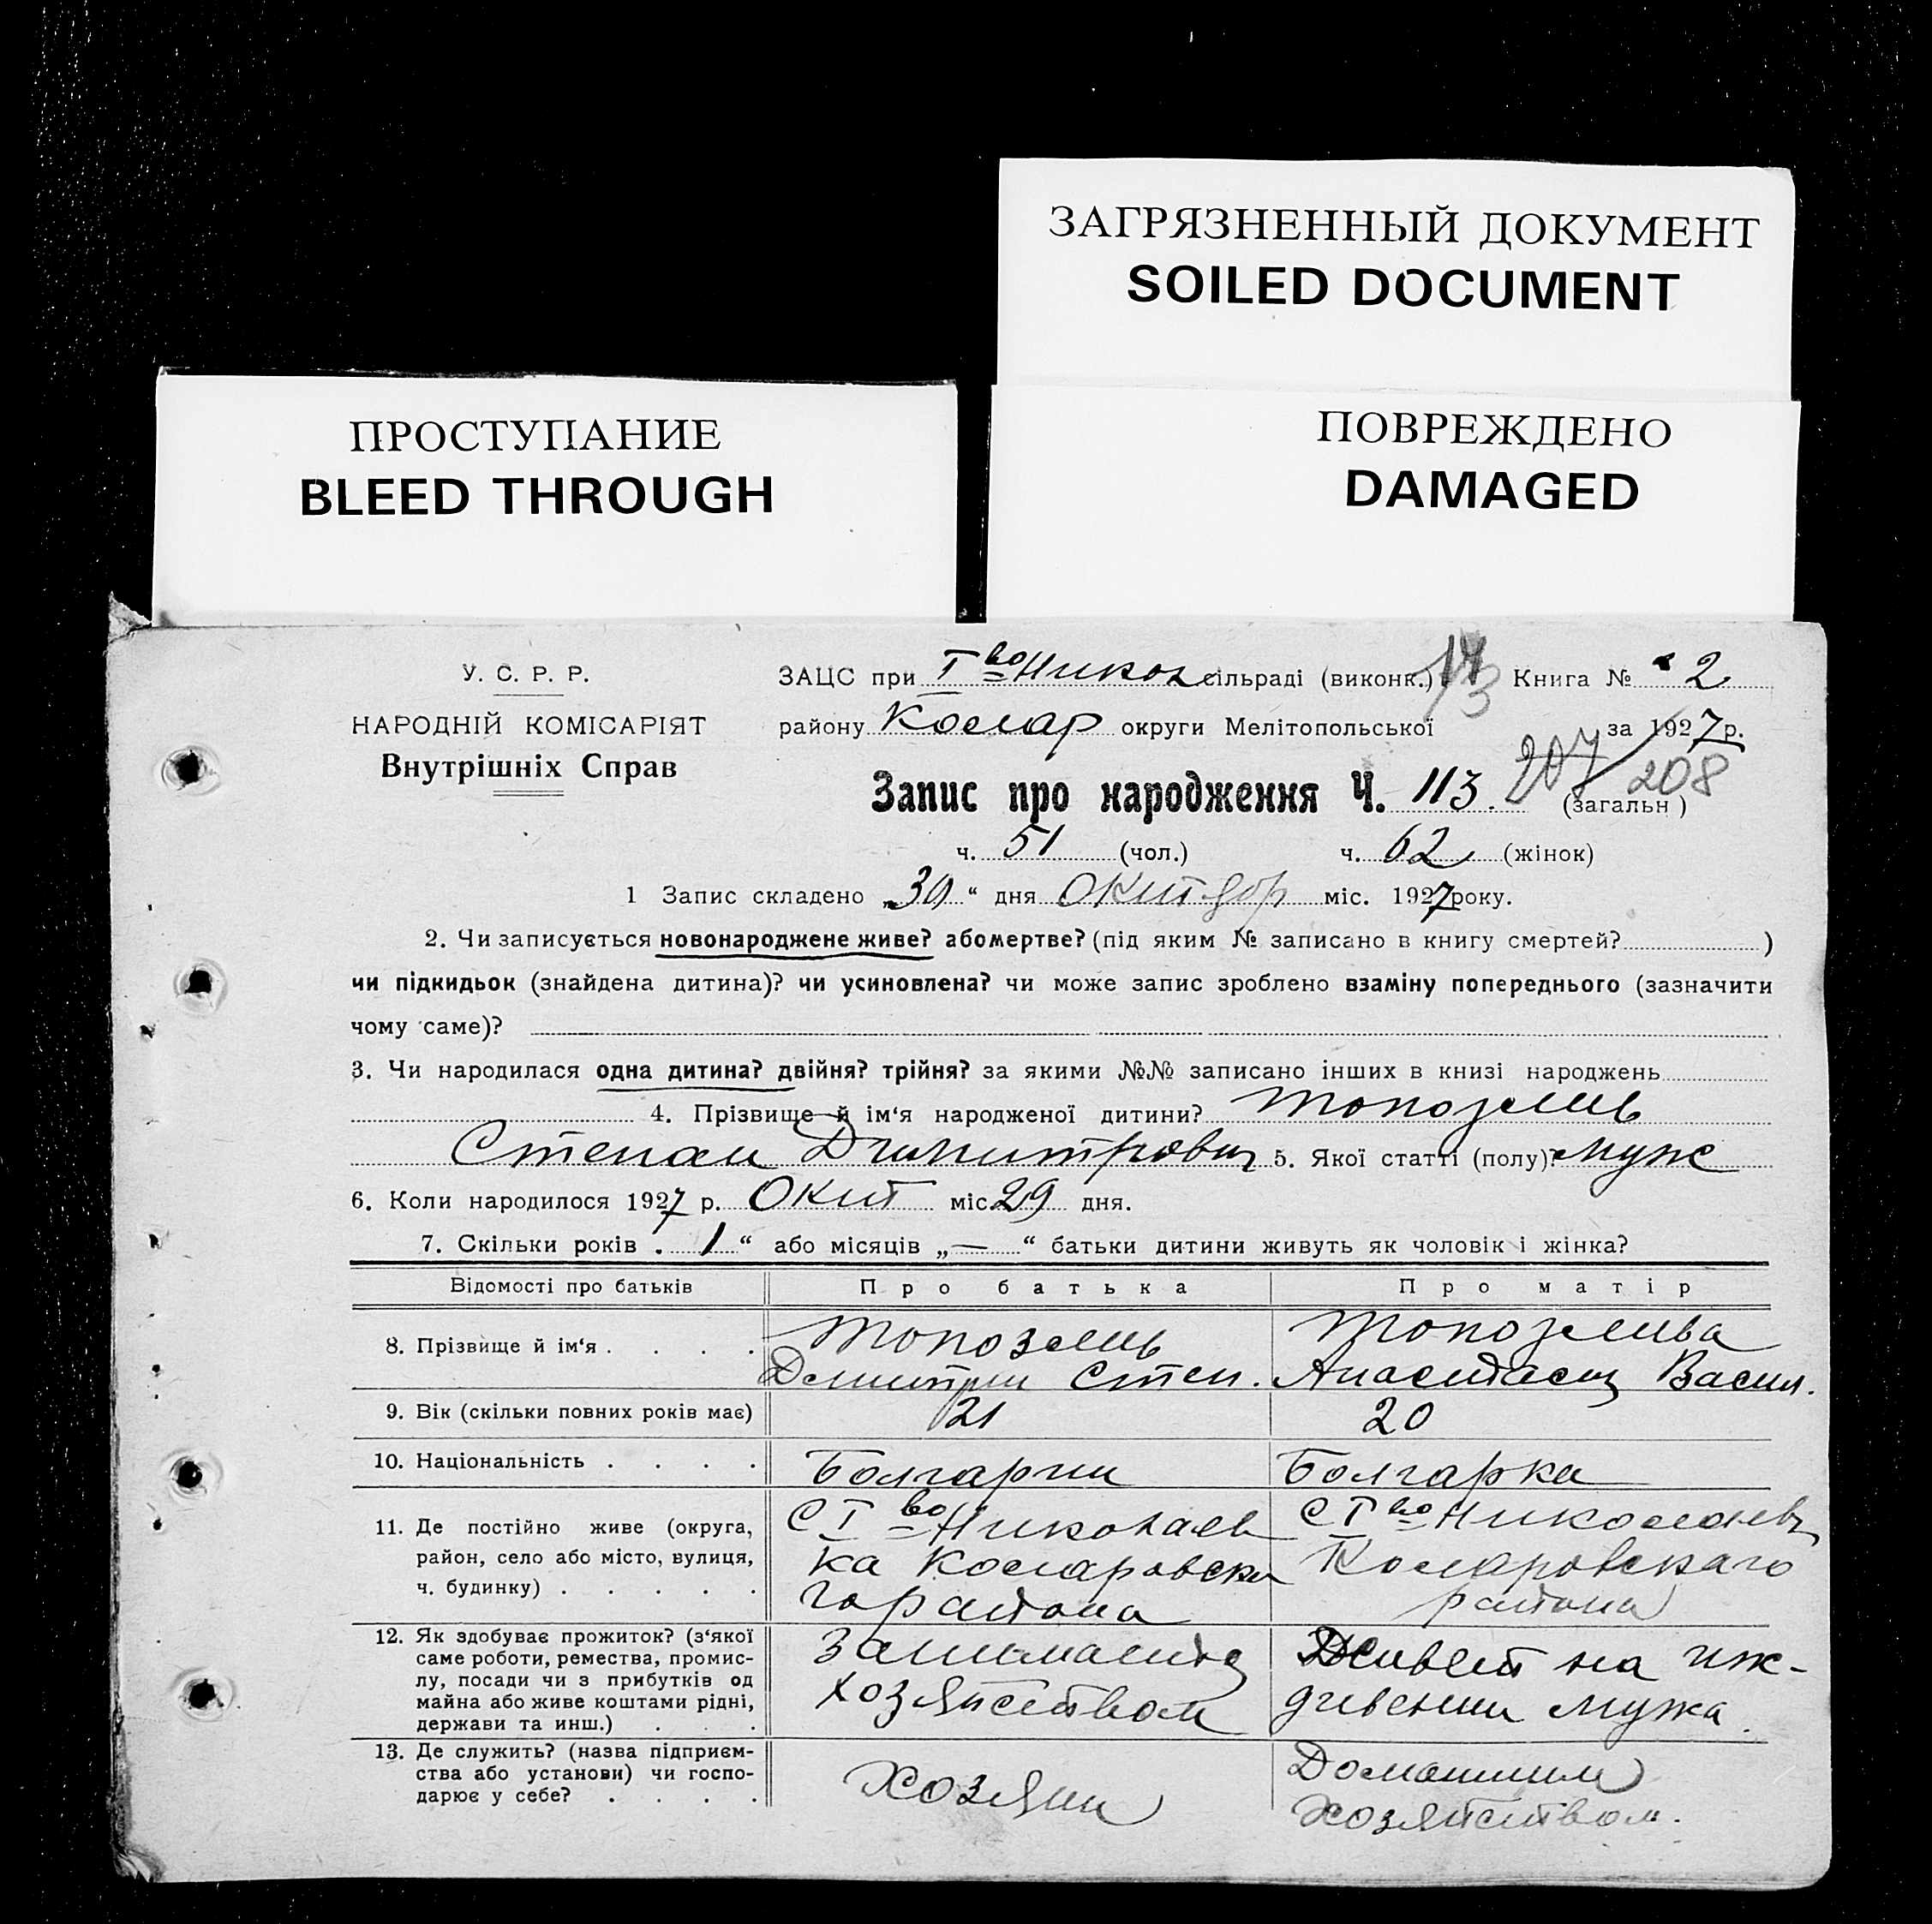 ЗАГРЯЗНЕННЫЙ ДОКУМЕНТ
SOILED DOCUMENT
ПРОСТУПАНИЕ
BLEED THROUGH
ПОВРЕЖДЕНО
DAMAGED
У. С. Р. Р.
НАРОДНІЙ КОМІСАРІЯТ
Внутрішніх Справ
ЗАЦС при І во Никол сільраді (виконк.) 14 Книга № 2
району Колар округи Мелітопольської за 1927 р.
Запис про народження Ч. 113. 207 208 (загальн)
ч. 51 (чол.) ч. 62 (жінок)
1 Запис складено „30“ дня Октябр міс. 1927 року.
2. Чи записується новонароджене живе? абомертве? (під яким № записано в книгу смертей? )
чи підкидьок (знайдена дитина)? чи усиновлена? чи може запис зроблено взаміну попереднього (зазначити
чому саме)?
3. Чи народилася одна дитина? двійня? трійня? за якими №№ записано інших в книзі народжень
4. Прізвище й ім'я народженої дитини? Топозлиь
Степан Димитрович 5. Якої статті (полу)? муж
6. Коли народилося 1927 р. Окт міс. 29 дня.
7. Скільки років „1“ або місяців „—“ батьки дитини живуть як чоловік і жінка?
Відомості про батьків Про батька Про матір
8. Прізвище й ім'я . . . . Топозлиь Топозлива
Димитрии Степ. Анастасия Васил.
9. Вік (скільки повних років має) 21 20
10. Національність . . . . Болгарин Болгарка
11. Де постійно живе (округа, район, село або місто, вулиця, ч. будинку) . . . . .
С І во Николаев
ка Коларовска
го раиона
С І во Николаевк
Коларовскаго
раиона
12. Як здобуває прожиток? (з'якої
саме роботи, ремества, промис-
лу, посади чи з прибутків од
майна або живе коштами рідні,
держави та инш.) . . .
Занимается
хозяйством
Живет на иж-
дивении мужа.
13. Де служить? (назва підприєм-
ства або установи) чи госпо-
дарює у себе? . . . .
Хозяин
Домашним
хозяйством.